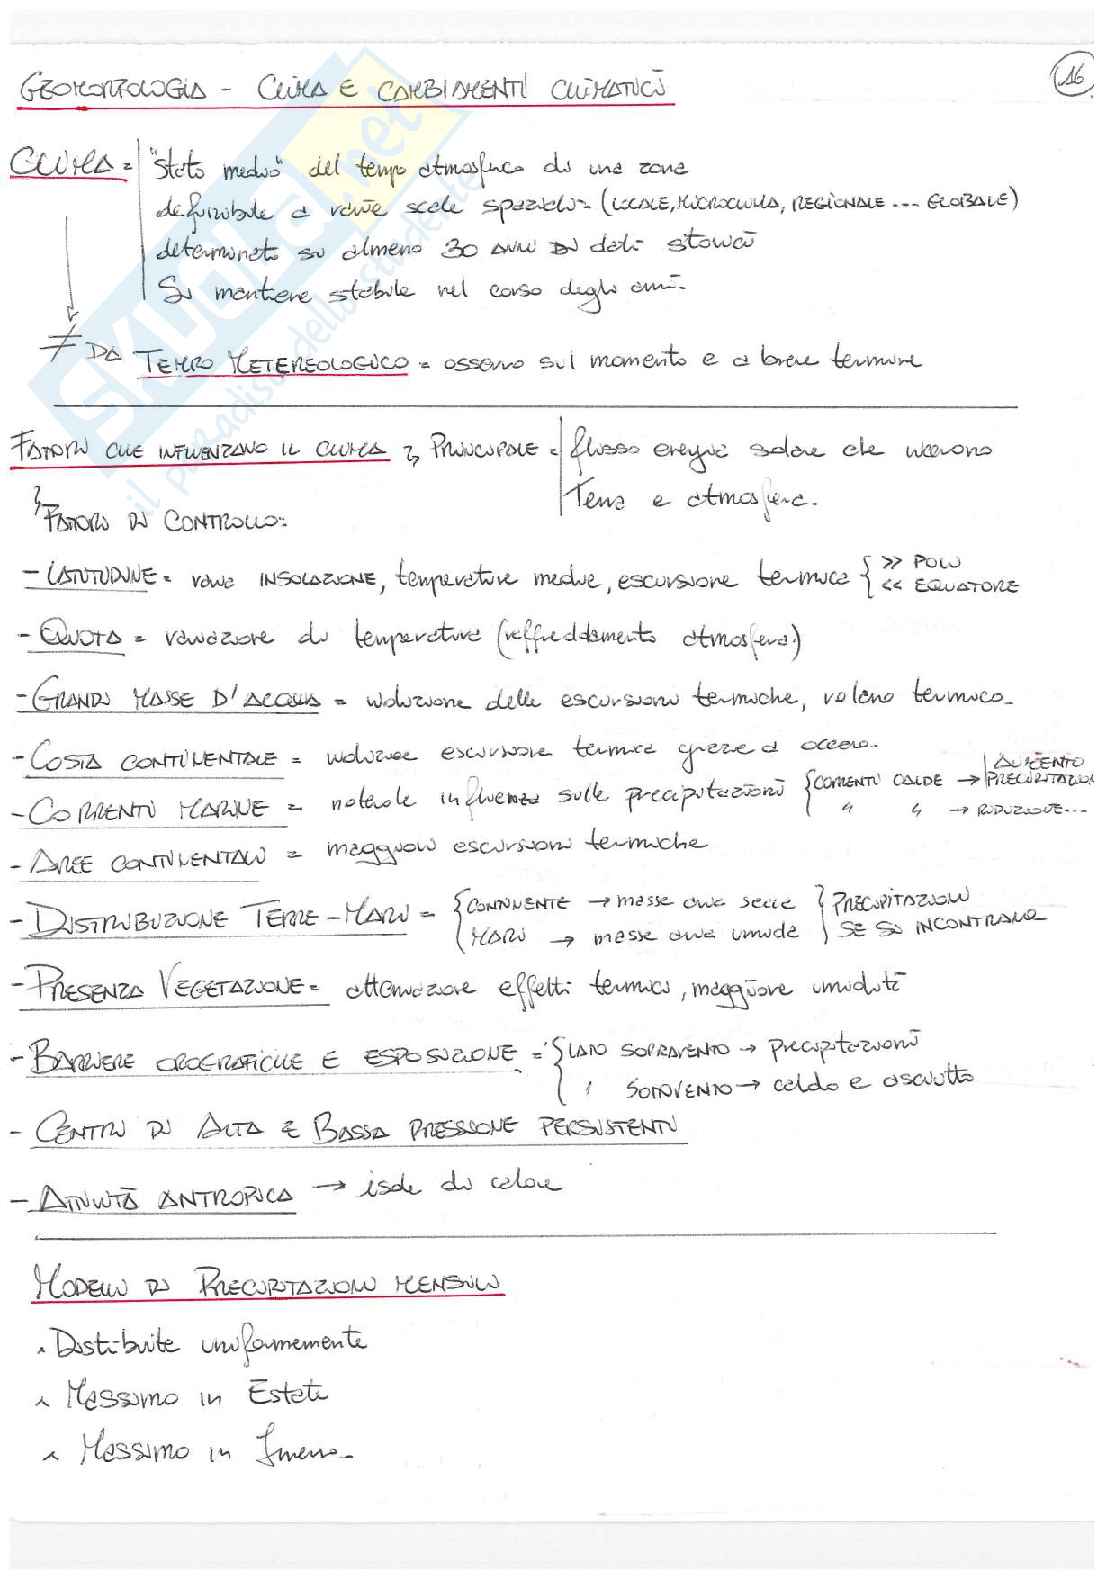 GEOMORFOLOGIA - CLIMA E CAMBIAMENTI CLIMATICI
16
CLIMA = "stato medio" del tempo atmosferico di una zona
definibile a varie scale spaziali (LOCALE, MICROCLIMA, REGIONALE ... GLOBALE)
determinato su almeno 30 ANNI DI dati storici
Si mantiene stabile nel corso degli anni
≠ DA TEMPO METEREOLOGICO = osservo sul momento e a breve termine
FATTORI CHE INFLUENZANO IL CLIMA PRINCIPALE = flusso energia solare che ricevono
Terra e atmosfera.
FATTORI DI CONTROLLO:
- LATITUDINE = varia INSOLAZIONE, temperature medie, escursione termica { >> POLI
<< EQUATORE
- QUOTA = variazione di temperatura (raffreddamento atmosfera)
- GRANDI MASSE D'ACQUA = riduzione delle escursioni termiche, volano termico
- COSTA CONTINENTALE = riduzione escursione termica grazie a oceano.
- CORRENTI MARINE = notevole influenza sulle precipitazioni { CORRENTI CALDE → AUMENTO PRECIPITAZIONI
" " → RIDUZIONE...
- AREE CONTINENTALI = maggiori escursioni termiche
- DISTRIBUZIONE TERRE-MARI = { CONTINENTE → masse aria secca } PRECIPITAZIONI
MARI → masse aria umida } SE SI INCONTRANO
- PRESENZA VEGETAZIONE = attenuazione effetti termici, maggiore umidità
- BARRIERE OROGRAFICHE E ESPOSIZIONE = { LATO SOPRAVENTO → precipitazioni
" SOTTOVENTO → caldo e asciutto
- CENTRI DI ALTA E BASSA PRESSIONE PERSISTENTI
- ATTIVITÀ ANTROPICA → isole di calore
MODELLI DI PRECIPITAZIONI MENSILI
Distribuite uniformemente
Massimo in Estate
Massimo in Inverno
SKUOLA.net
il paradiso dello studente